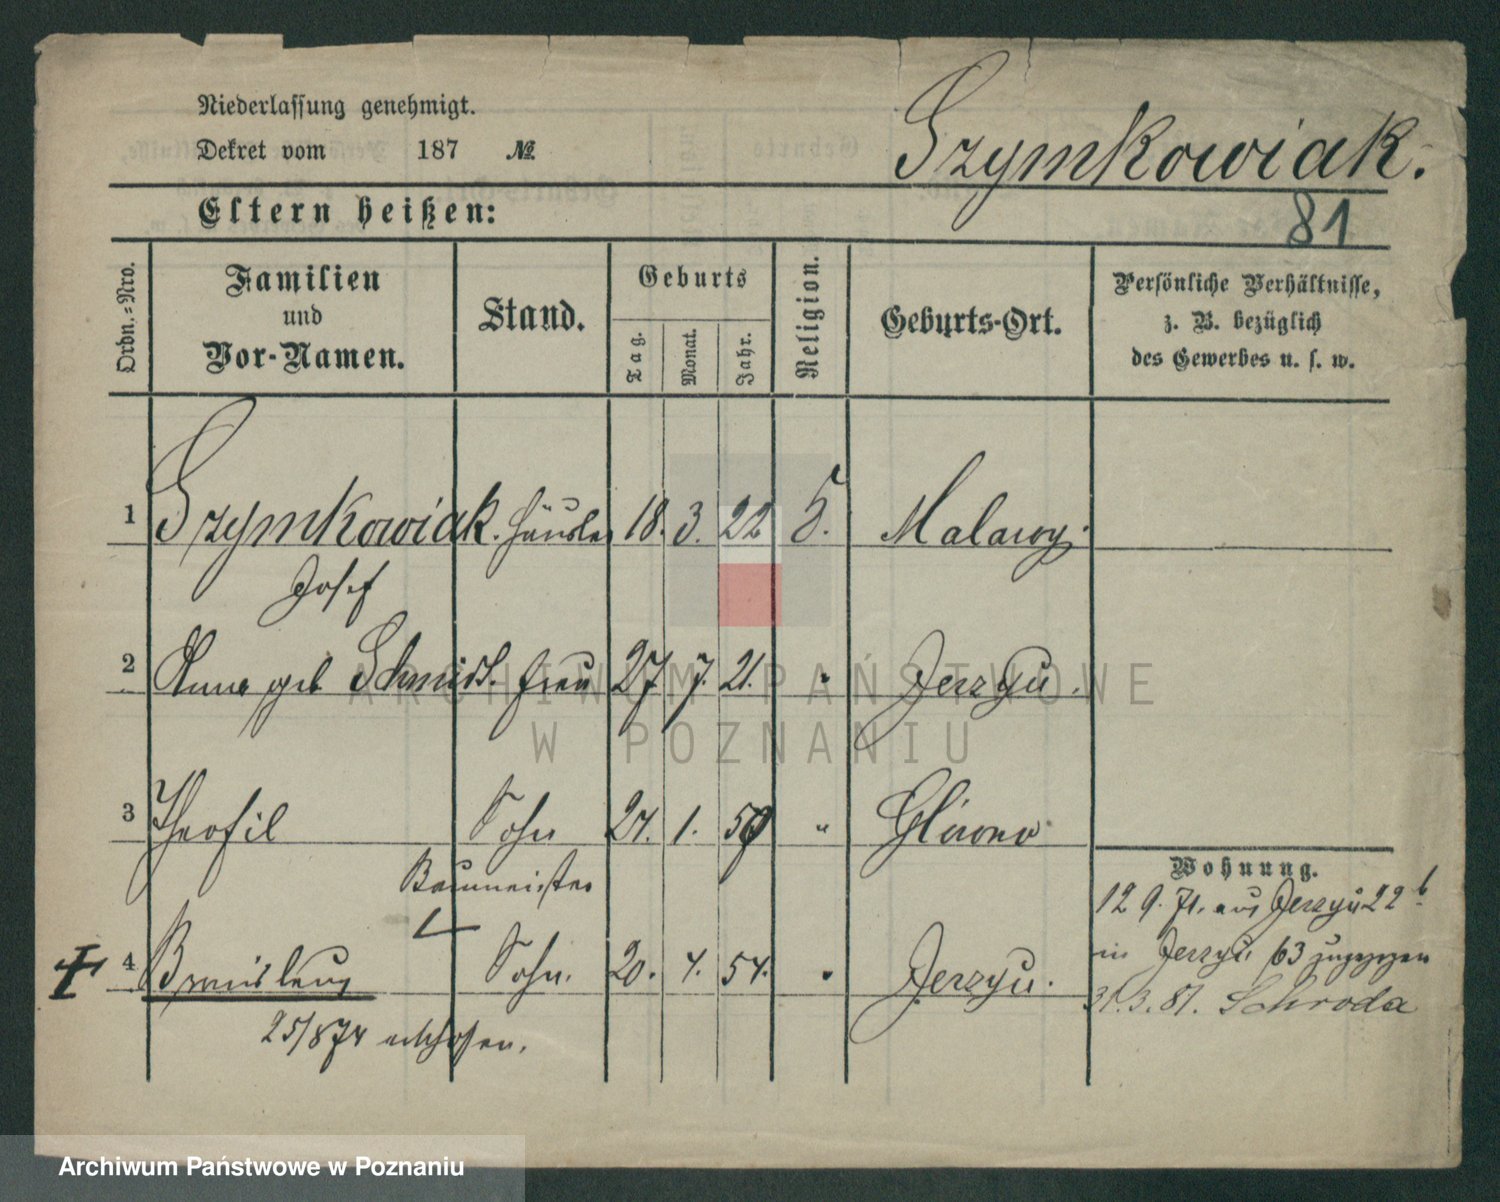 Niederlassung genehmigt.
Dekret vom 187 №
Szymkowiak.
Eltern heißen:
81
Ordn.-Nro.
Familien und Vor-Namen.
Stand.
Geburts
Tag.
Monat.
Jahr.
Religion.
Geburts-Ort.
Persönliche Verhältnisse,
z. B. bezüglich
des Gewerbes u. s. w.
1 Szymkowiak. Häusler 18. 3. 22
Josef
2 Anna geb Schmidt. Frau 27. 7. 21. " Jerzyu.
3 Theofil Sohn 24. 1. "
Baumeister
Wohnung.
12 9. 71. aus Jerzyu 22 b.
4 Sohn. 20. 4. 54. " Jerzyu.
in Jerzyu 63 zugezogen
31.3.81. Schroda
25/874
ARCHIWUM PAŃSTWOWE
W POZNANIU
Archiwum Państwowe w Poznaniu